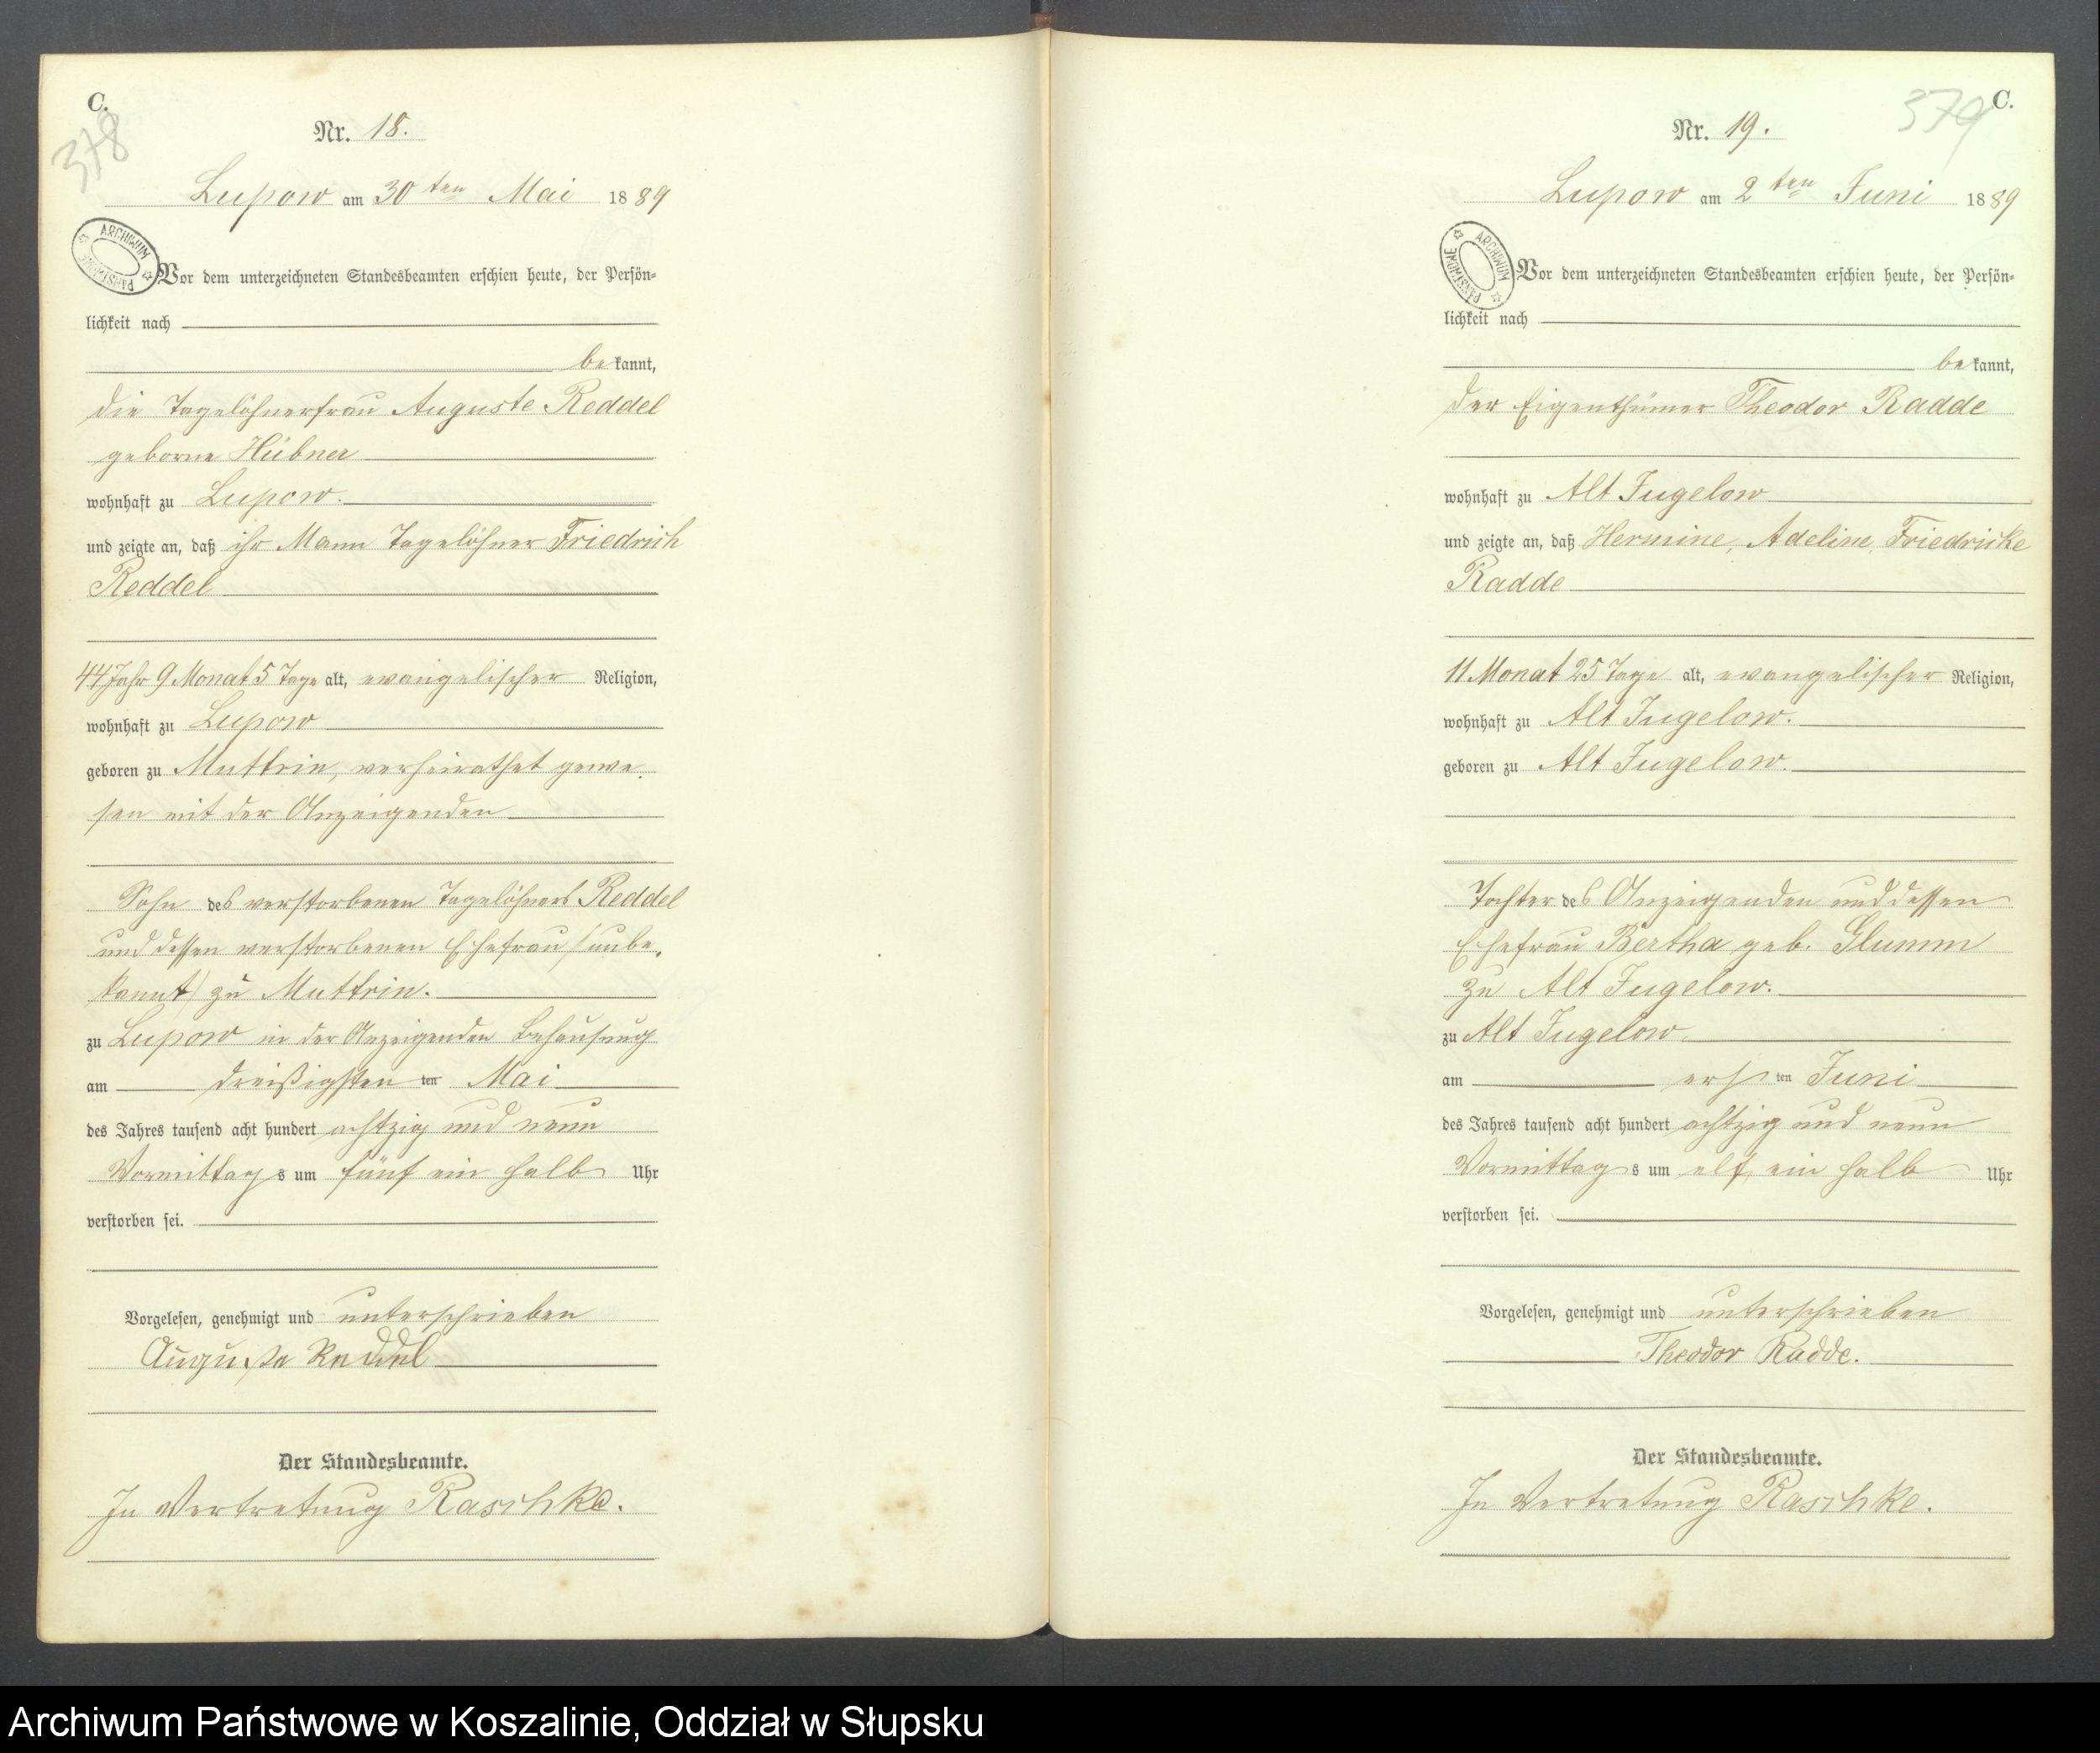 C.
378
Nr. 18.
Lupow am 30ten Mai 1889
ARCHIWUM PAŃSTWOWE
Vor dem unterzeichneten Standesbeamten erschien heute, der Persön=
lichkeit nach
bekannt,
die Tagelöhnerfrau Auguste Reddel
geborne Hübner
wohnhaft zu Lupow.
und zeigte an, daß ihr Mann Tagelöhner Friedrich
Reddel
44 Jahr 9 Monat 5 Tage alt, evangelischer Religion,
wohnhaft zu Lupow
geboren zu Muttrin, verheirathet gewe
sen mit der Anzeigenden
Sohn des verstorbenen Tagelöhners Reddel
und dessen verstorbenen Ehefrau (unbe
kannt) zu Muttrin.
zu Lupow in der Anzeigenden Behausung
am dreißigsten ten Mai
des Jahres tausend acht hundert achtzig und neun
Vormittags um fünf ein halb Uhr
verstorben sei.
Vorgelesen, genehmigt und unterschrieben
Auguste Reddel
Der Standesbeamte.
In Vertretung Raschke.
C.
379
Nr. 19.
Lupow am 2ten Juni 1889
ARCHIWUM PAŃSTWOWE
Vor dem unterzeichneten Standesbeamten erschien heute, der Persön=
lichkeit nach
bekannt,
der Eigenthümer Theodor Radde
wohnhaft zu Alt Jugelow
und zeigte an, daß Hermine, Adeline, Friedricke
Radde
11 Monat 25 Tage alt, evangelischer Religion,
wohnhaft zu Alt Jugelow.
geboren zu Alt Jugelow.
Tochter des Anzeigenden und dessen
Ehefrau Bertha geb. Glumm
zu Alt Jugelow.
zu Alt Jugelow
am ersten Juni
des Jahres tausend acht hundert achtzig und neun
Vormittags um elf ein halb Uhr
verstorben sei.
Vorgelesen, genehmigt und unterschrieben
Theodor Radde.
Der Standesbeamte.
In Vertretung Raschke.
Archiwum Państwowe w Koszalinie, Oddział w Słupsku